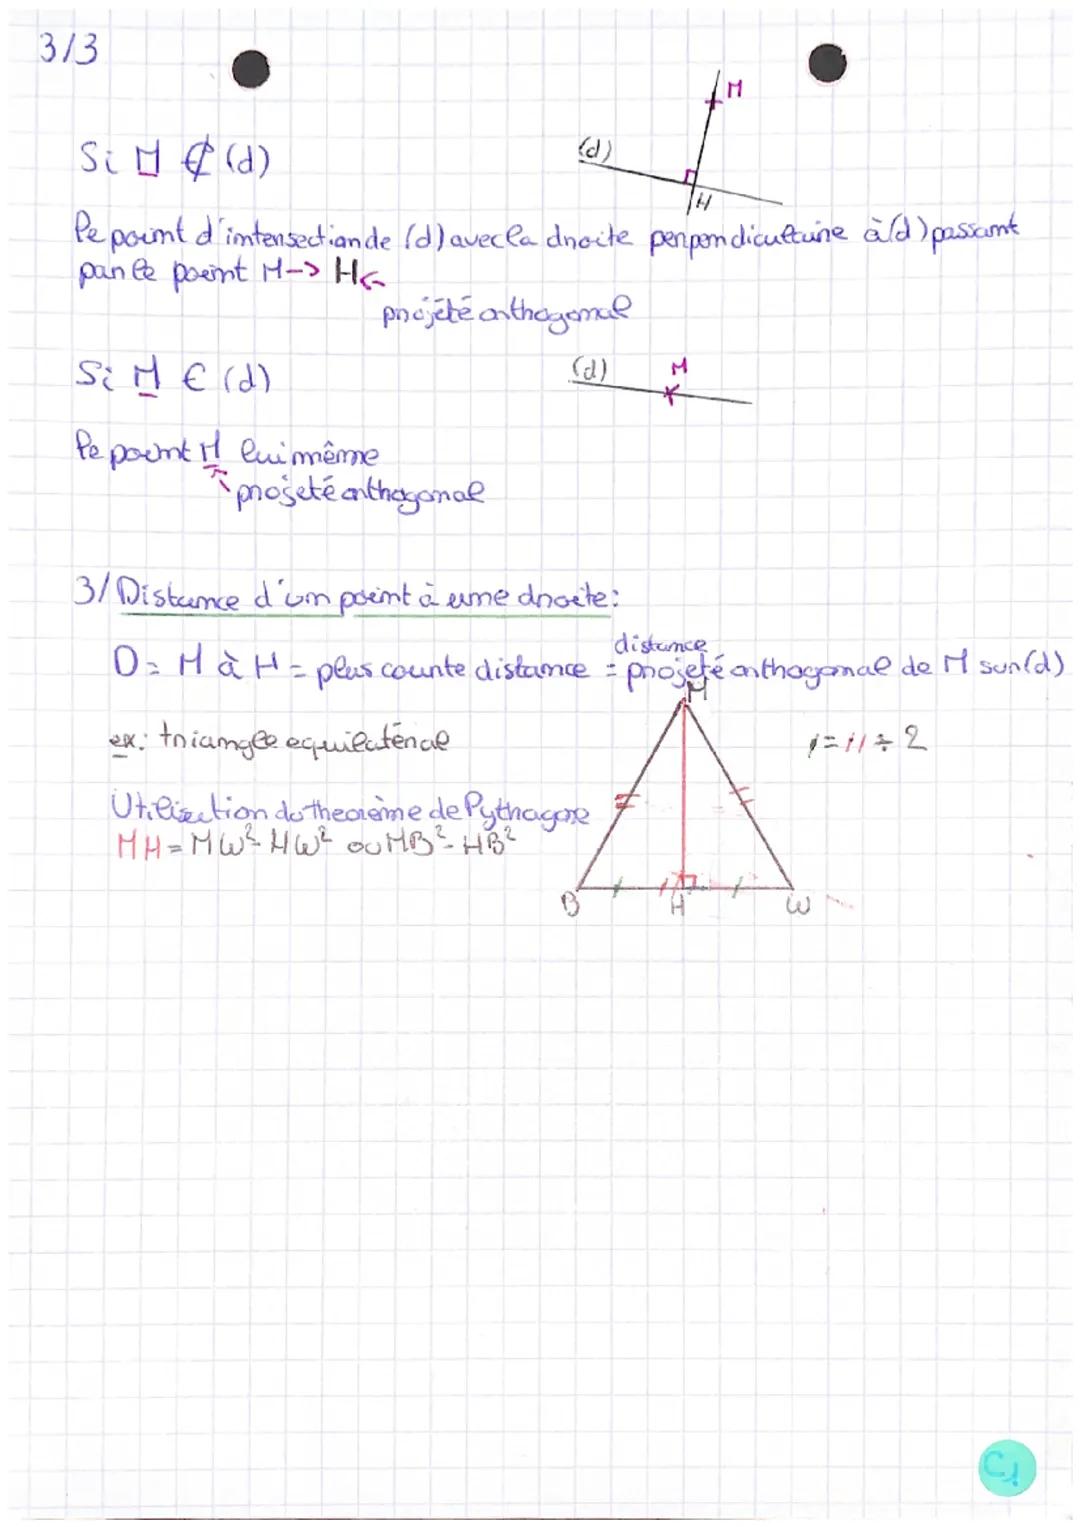 3/3
M
Si M ∉ (d)
(d)
H
le point d'intersection de (d) avec la droite perpendiculaire à (d) passant
par le point M -> H <-
projeté orthogonal
Si M ∈ (d)
(d)
M
le point M lui même
projeté orthogonal
3/ Distance d'un point à une droite:
distance
D = M à H = plus courte distance = projeté orthogonal de M sur (d)
M
ex: triangle equilatéral
/ = // ÷ 2
Utilisation du theorème de Pythagore
MH = MW² - HW² ou MB² - HB²
B
H
W